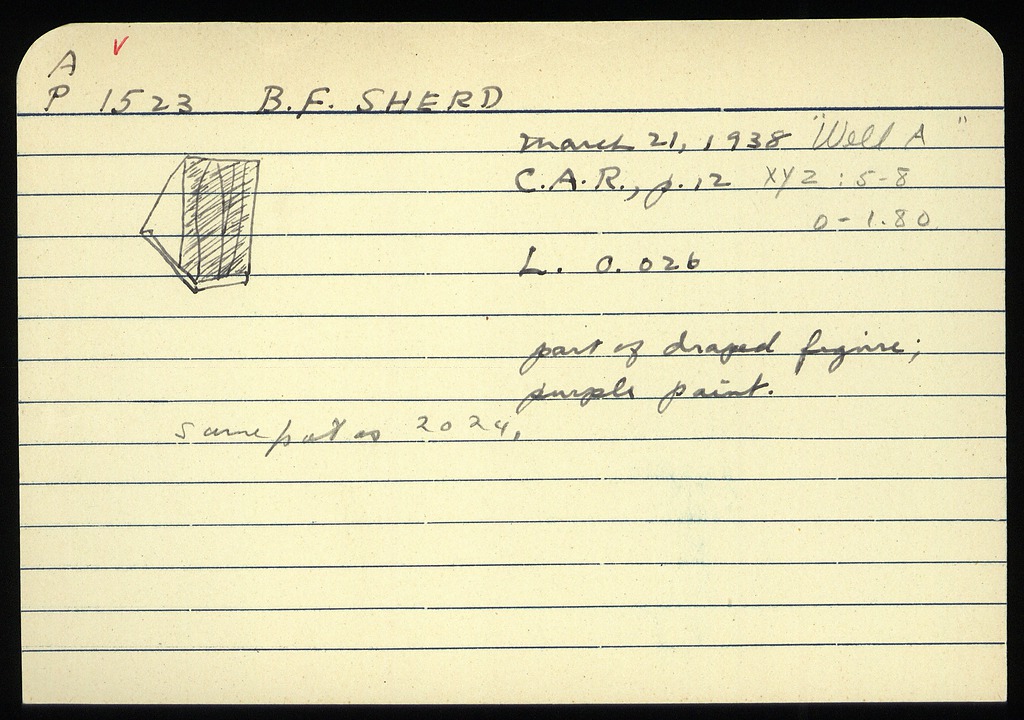 A v
P 1523 B.F. SHERD
March 21, 1938 "Well A"
C.A.R., p.12 XYZ : 5-8
0-1.80
L. 0.026
part of draped figure;
purple paint.
Same pot as 2024.